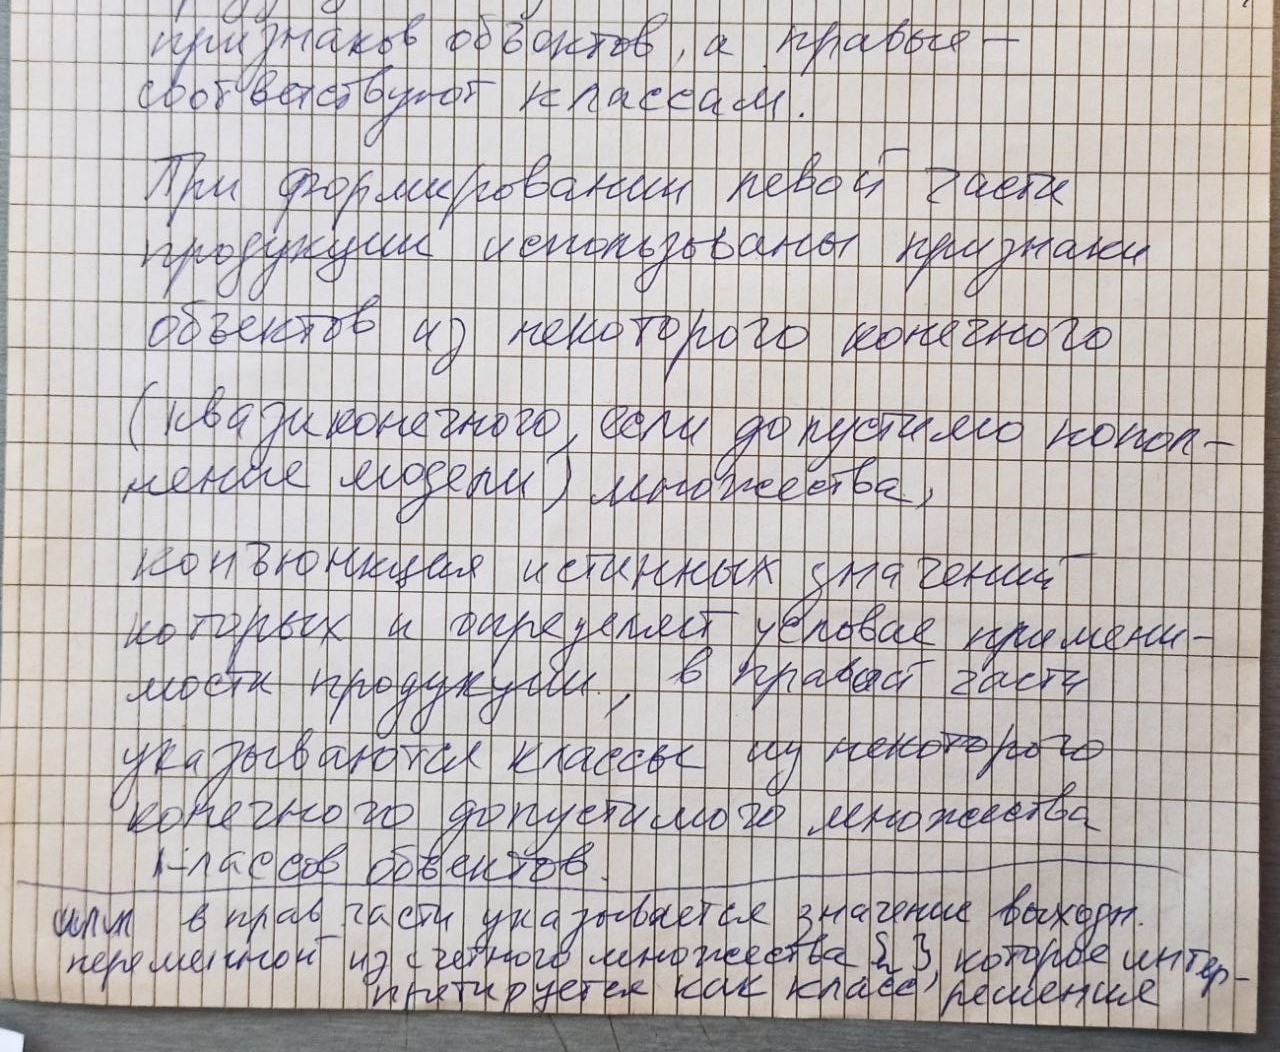 признаков объектов, а правые –
соответствуют классам.
При формировании левой части
продукции использованы признаки
объектов из некоторого конечного
(квазиконечного, если допустимо попол-
нение модели) множества,
конъюнкция истинных значений
которых и определяет условие примени-
мости продукции, в правой части
указываются классы из некоторого
конечного допустимого множества
классов объектов.
или в прав части указывается значение выходн.
переменной из счетного множества { }, которое интер-
претируется как класс решения